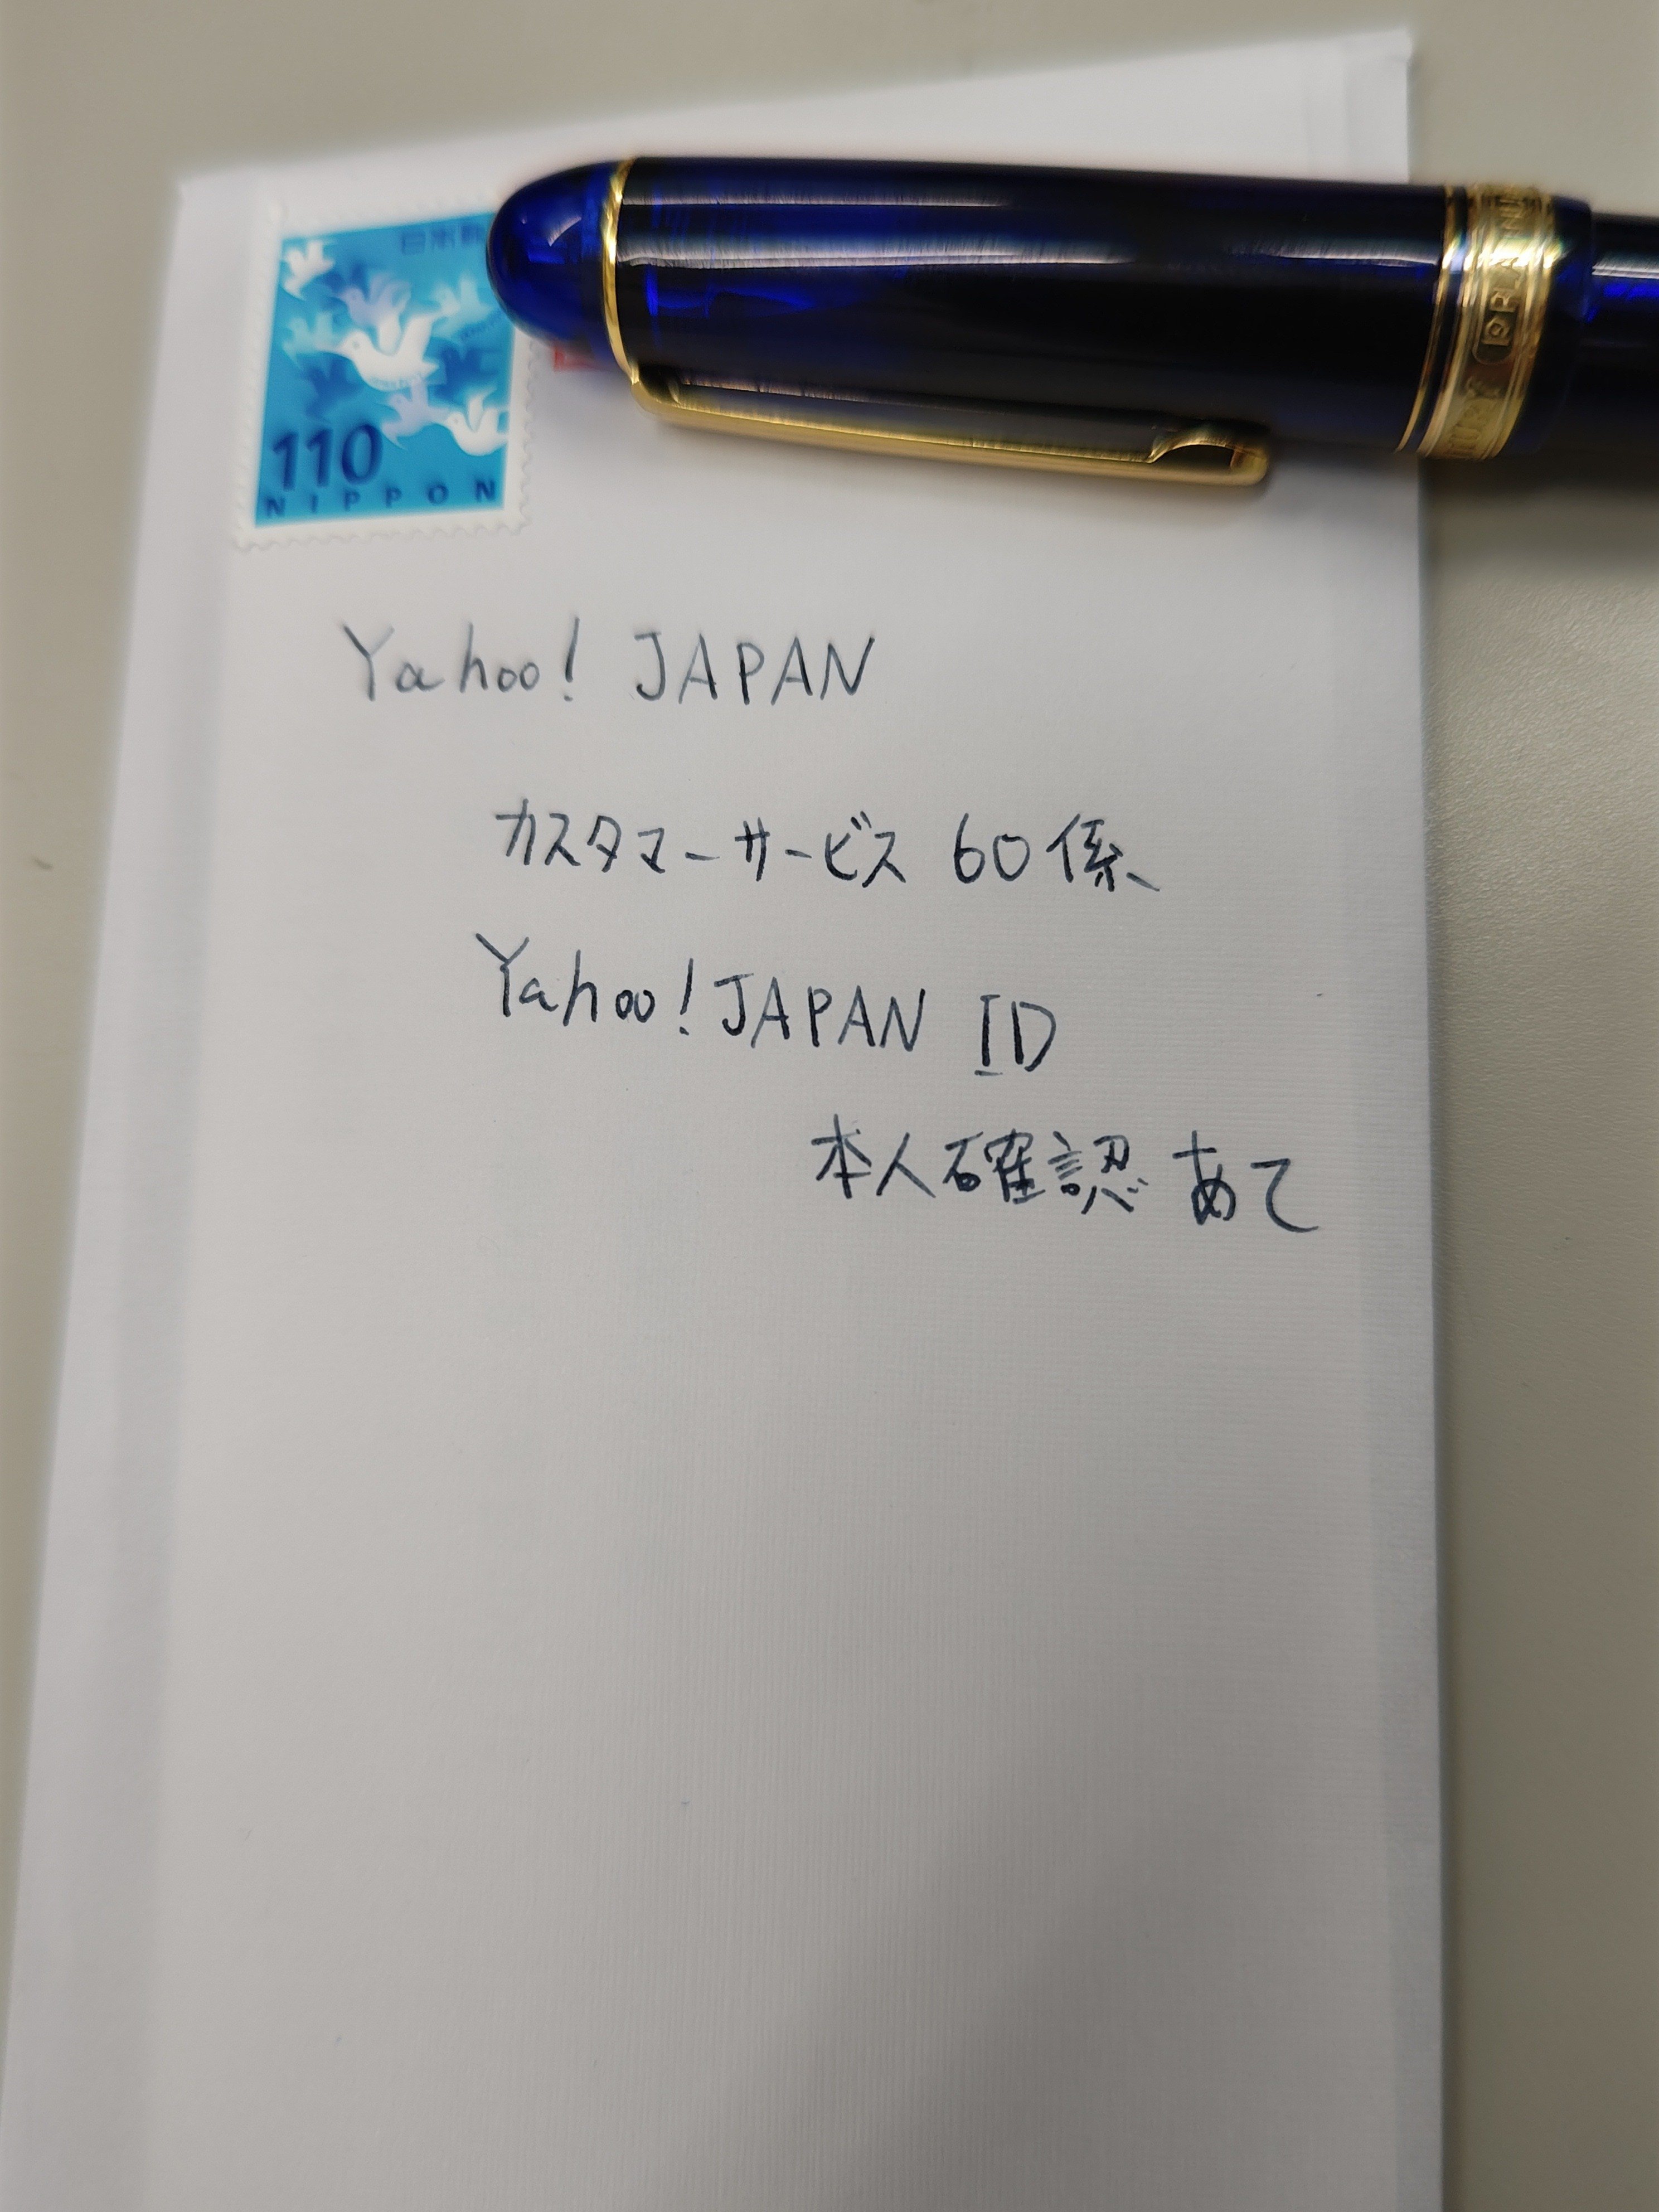 日本郵
110
NIPPON
PLATINUM
Yahoo! JAPAN
カスタマーサービス 60係
Yahoo! JAPAN ID
本人確認 あて